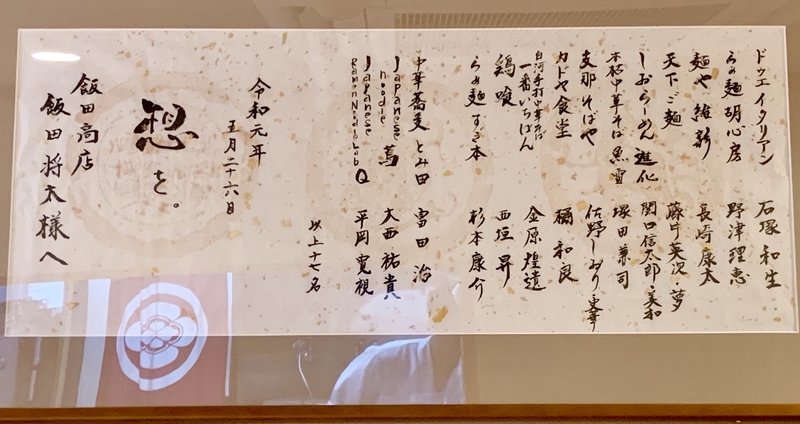 ドゥエイタリアン 石塚和生
らぁ麺 胡心房 野津理恵
麺や 維新 長崎康太
天下ご麺 藤井英次・夢
しおらーめん 進化 関口信太郎・美和
本枯中華そば 魚雷 塚田兼司
支那そばや 佐野しおり
カドヤ食堂 橘和良
白河手打中華そば 一番いちばん 金原煌遣
鶏喰 西垣昇
らぁ麺 すぎ本 杉本康介
中華蕎麦 とみ田 富田治
Japanese noodle 蔦 大西祐貴
Japanese Ramen Noodle Lab Q 平岡寛視
以上十七名
令和元年
五月二十六日
想を。
飯田商店
飯田将太様へ